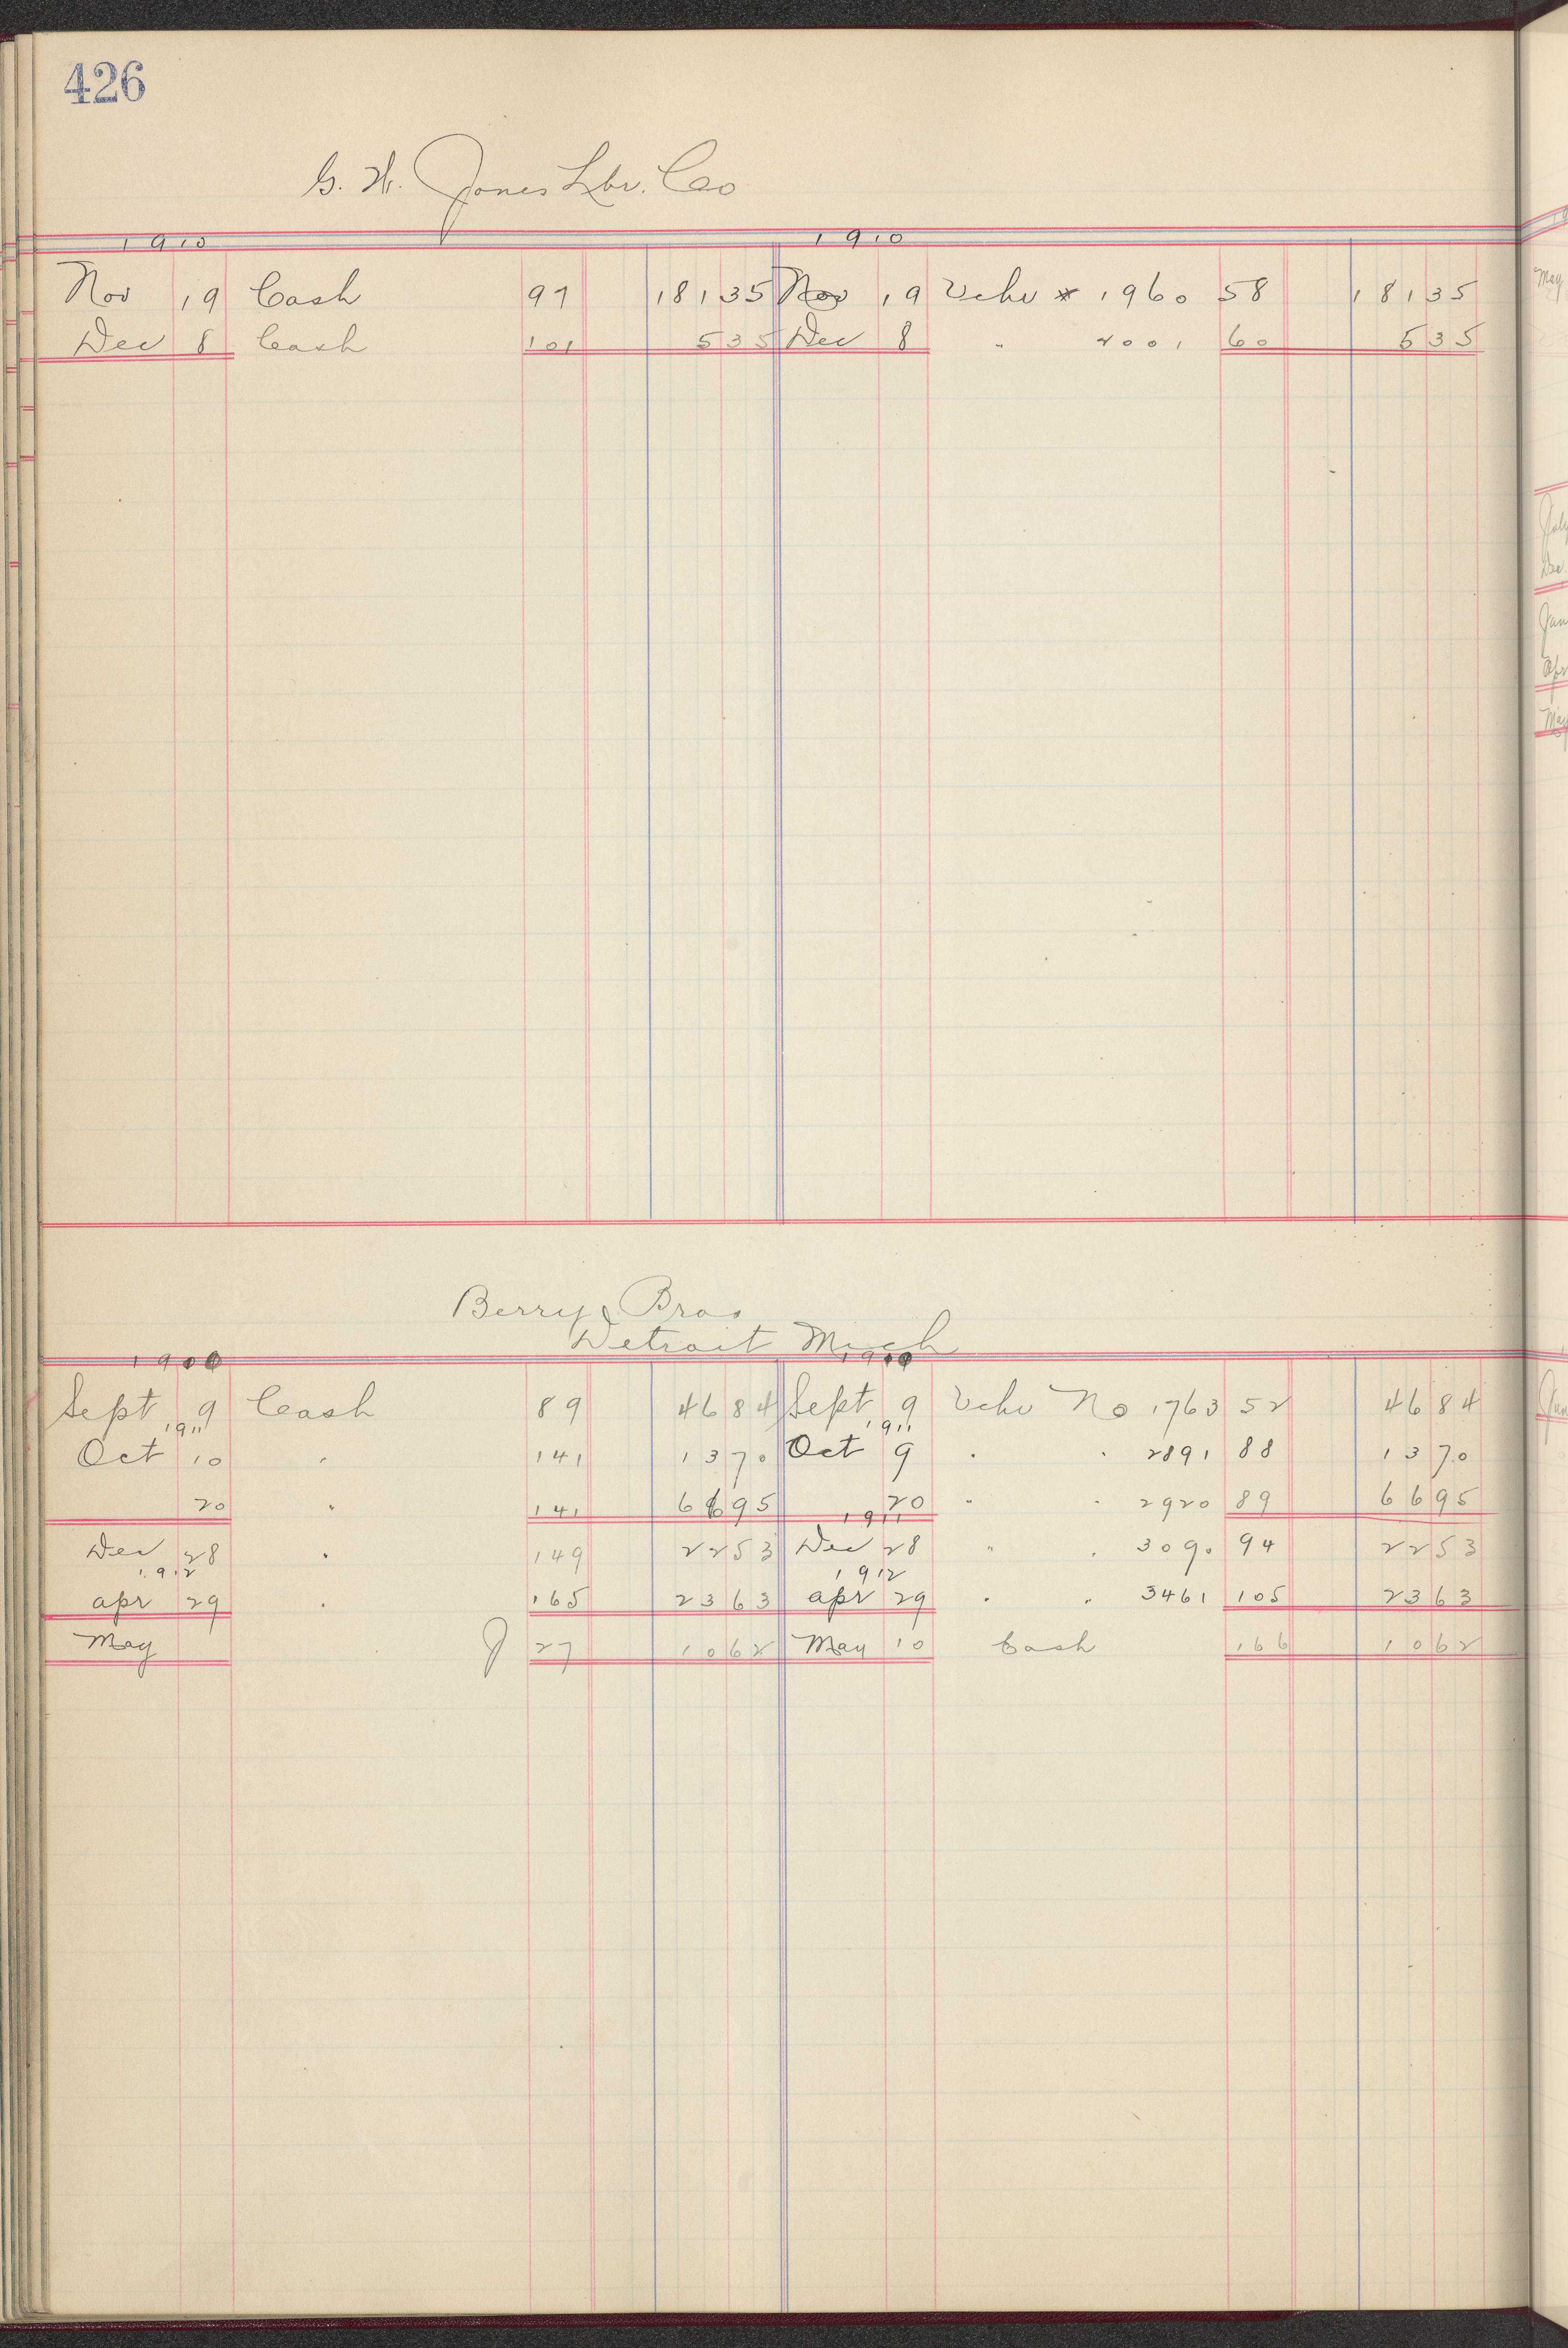 426
G. W. Jones Lbr. Co
1910 1910
Nov 19 Cash 97 181 35 Nov 19 Vchr * 1960 58 181 35
Dec 8 Cash 101 5 35 Dec 8 " 2001 60 5 35
Berry Bros
Detroit Mich
1910 1910
Sept 9 Cash 89 46 84 Sept 9 Vchr No 1763 52 46 84
1911 1911
Oct 10 " 141 13 70 Oct 9 " " 2891 88 13 70
20 " 141 66 95 20 " " 2920 89 66 95
1911
Dec 28 " 149 22 53 Dec 28 " " 3090 94 22 53
1912 1912
Apr 29 " 165 23 63 Apr 29 " " 3461 105 23 63
May J 27 10 62 May 10 Cash 166 10 62
May
July
Dec
Jan
Apr
May